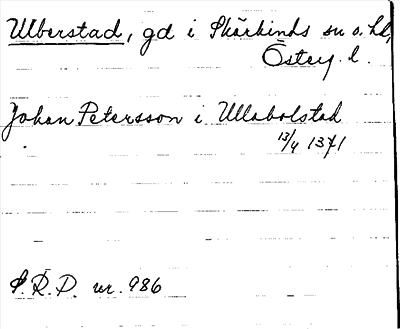 Ulberstad, gd i Skärkinds sn o. hd,
Österg. l.
Johan Petersson i Ullabolstad
13/4 1371
S.R.P. nr. 986